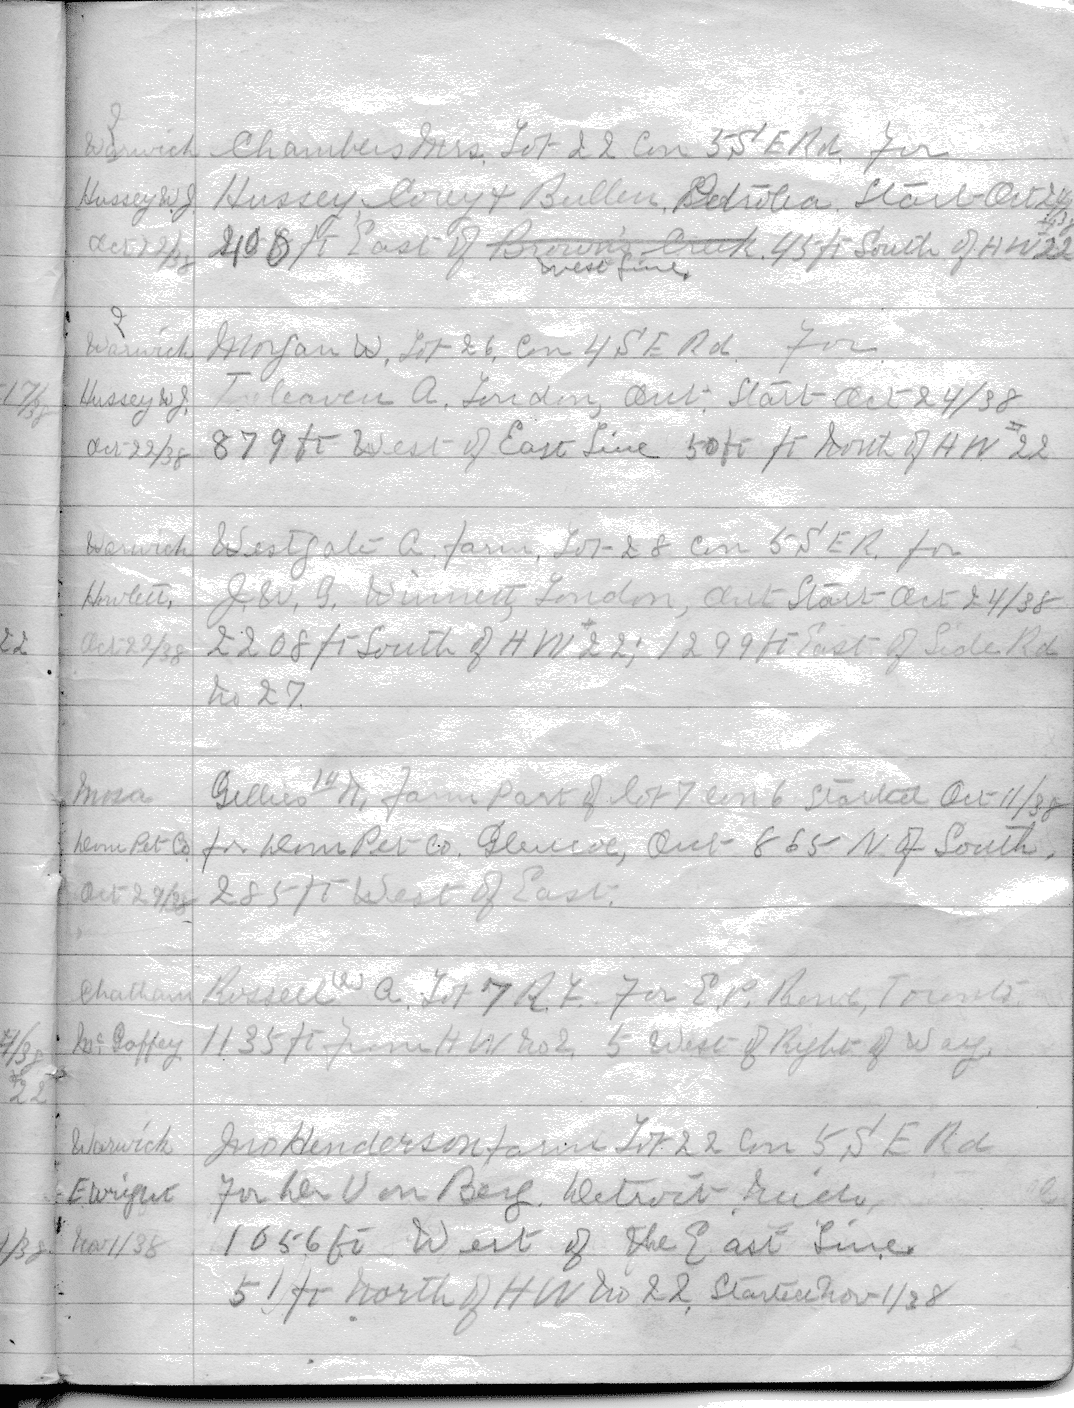 2
Warwick Chambers Mrs. Lot 22 Con 5 S E Rd. For
Hussey W.J. Hussey, Corey & Bullen, Petrolia. Start Oct 24/38
Oct 22/38 408 ft East of Brown's Creek. 45 ft South of HW 22
West Line.
2
Warwick Morgan W. Lot 26, Con 4 S E Rd. For
17/38 Hussey W.J. Treleaven A. London, Ont. Start Oct 24/38
Oct 22/38 879 ft West of East Line 50 ft ft North of HW #22
Warwick Westgate A. farm, Lot 28 Con 5 S E R. for
Howlett, J. W. G. Winnett, London, Ont Start Oct 24/38
22 Oct 22/38 2208 ft South of HW #22; 1299 ft East of Side Rd
No 27.
Mosa Gillies N. farm Part of lot 7 Con 6 Started Oct 11/38
Dom Pet Co. for Dom Pet Co. Glencoe, Ont 865 N of South,
Oct 29/38 285 ft West of East.
Chatham Russell (2) A. Lot 7 R.T. For E.P. Rowe, Toronto.
4/38 McGaffey 1135 ft from HW No 2, 5 West of Right of Way.
#22
Warwick Jno Henderson farm Lot 22 Con 5 S E Rd
E Wright For Dr Von Berg. Detroit, Mich,
1/38 Nov 1/38 1056 ft West of the East Line.
51 ft North of HW No 22, Started Nov 1/38